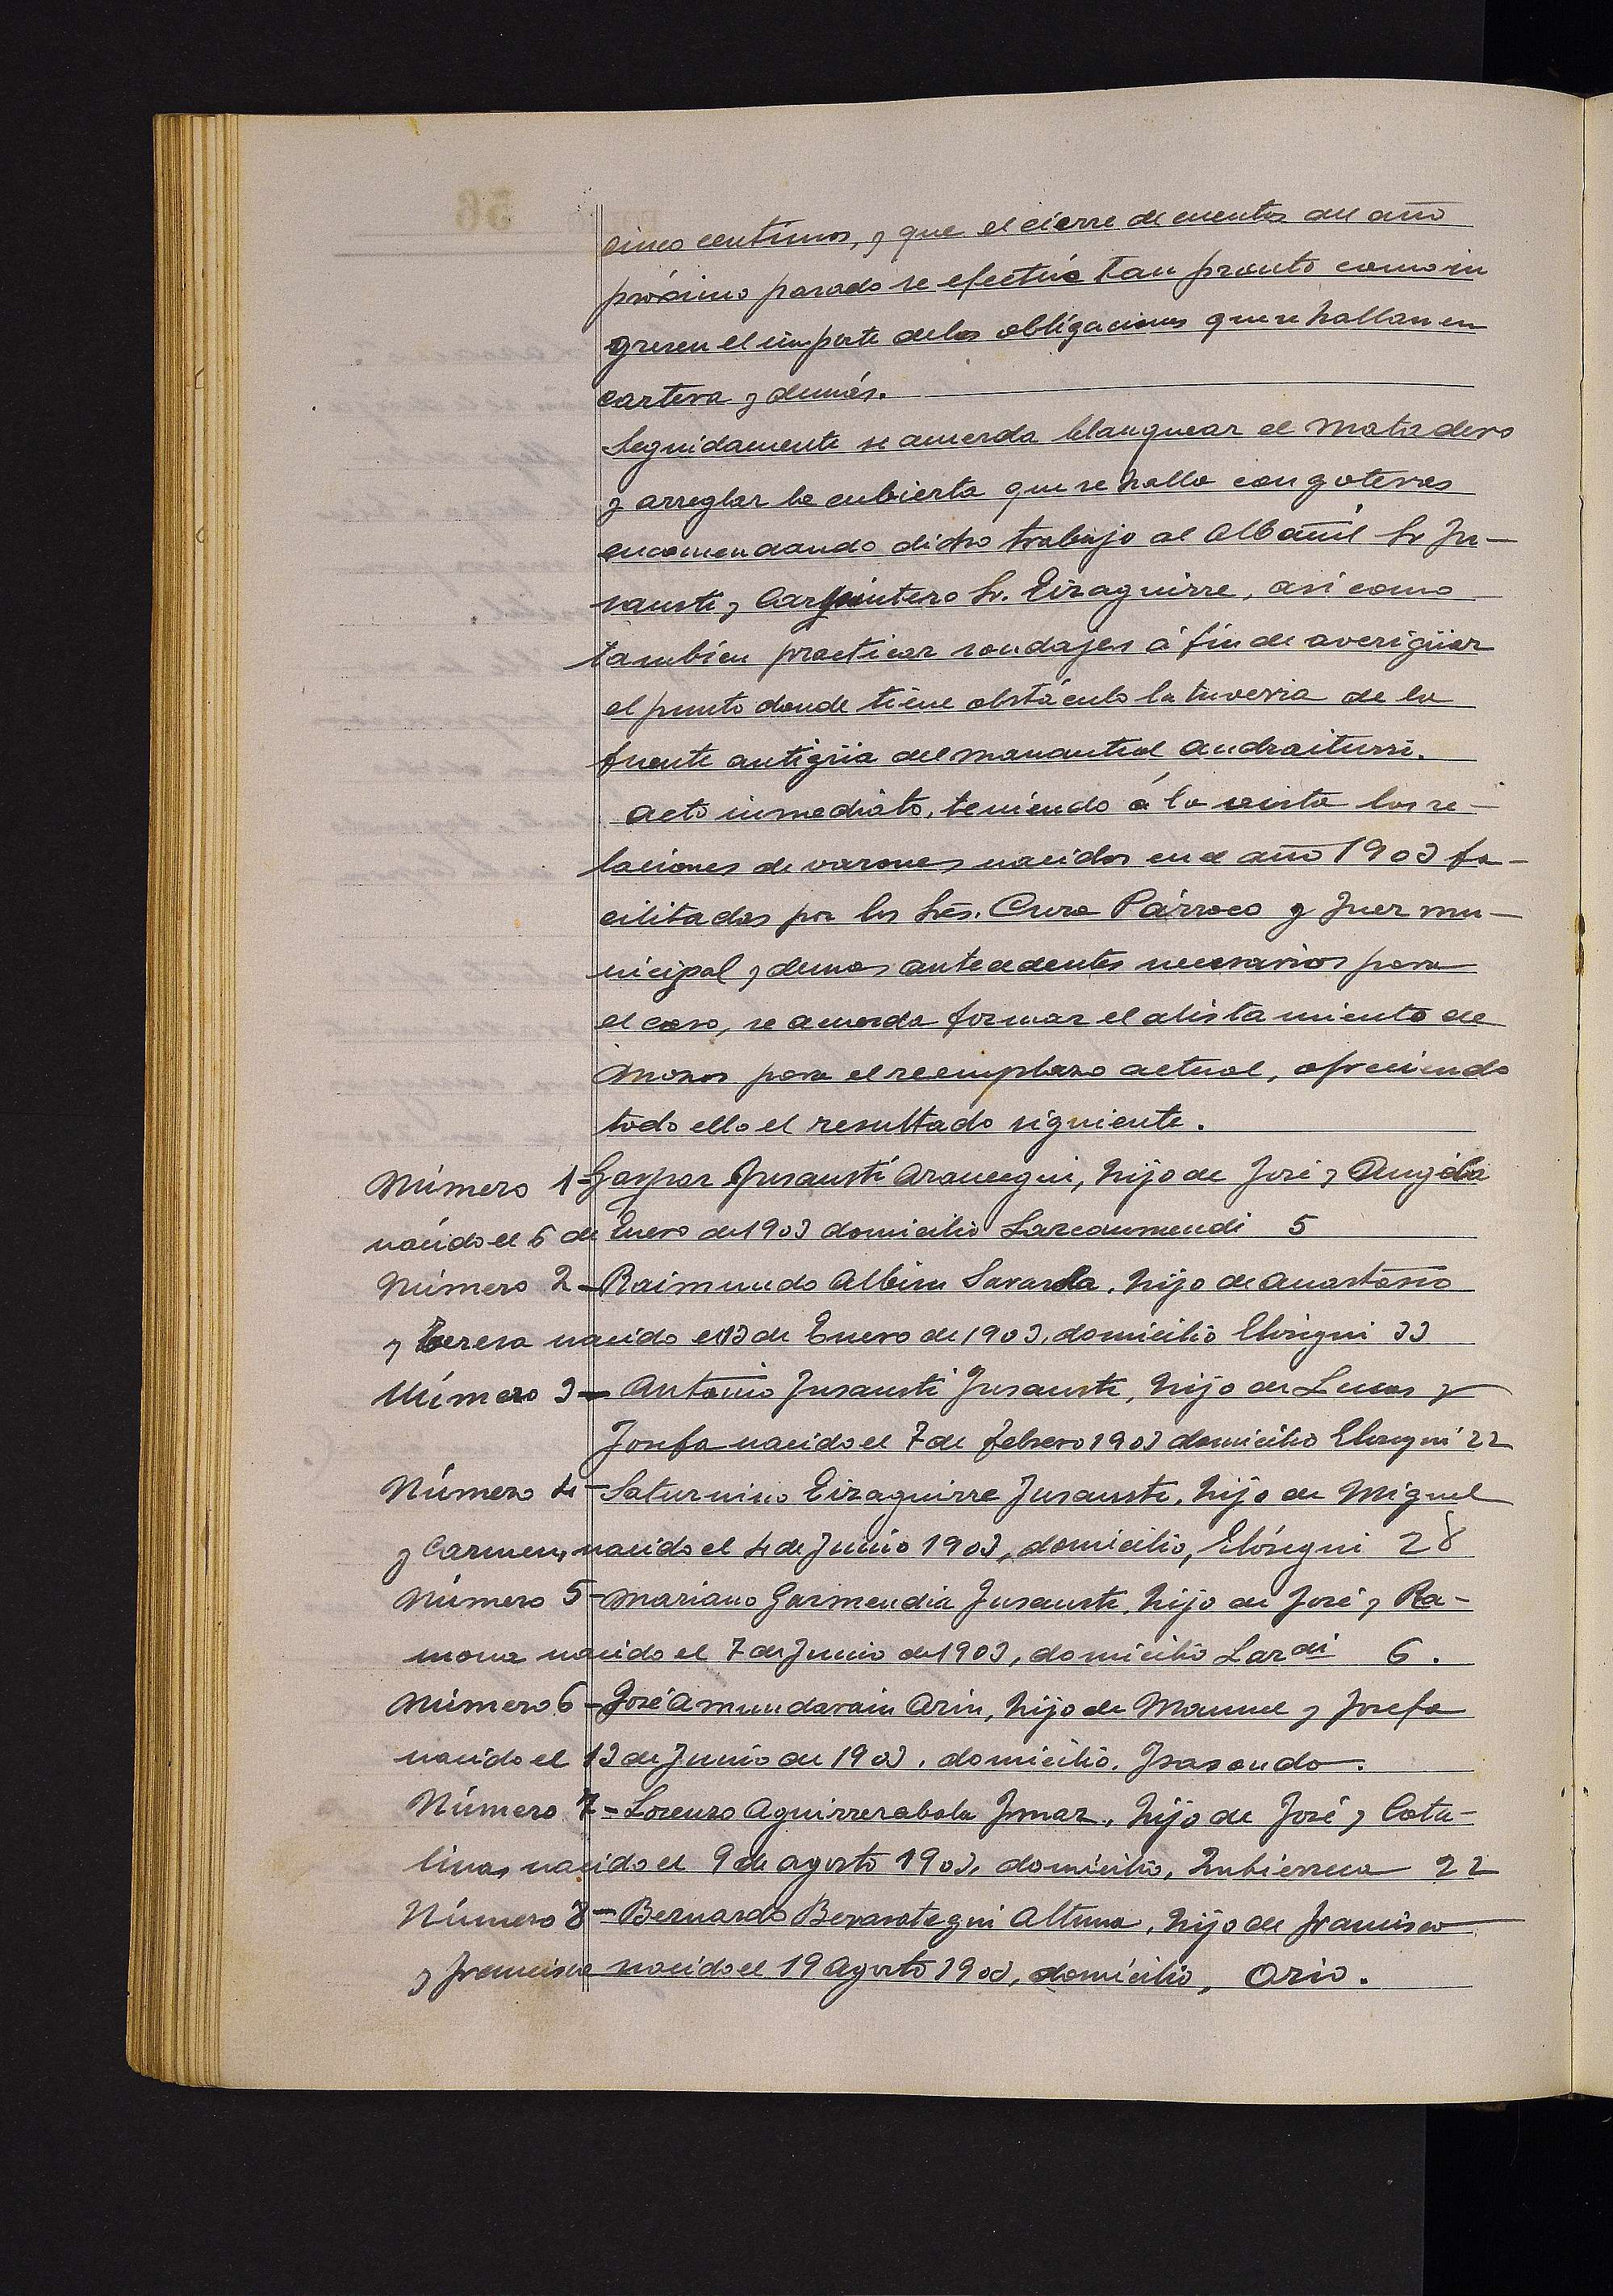 cinco centimos, y que el cierre de cuentas del año
próximo pasado se efectúe tan pronto como in
gresen el importe de las obligaciones que se hallan en
cartera y demás.
Seguidamente se acuerda blanquear el Matadero
y arreglar la cubierta que se halla con goteras
encomendando dicho trabajo al Albañil Sr Ju-
sausti y Carpintero Sr. Eizaguirre, asi como
tambíen practicar sondajes á fin de averigüar
el punto donde tiene obstáculo la tuveria de la
fuente antigüa del manantial Andraiturri.
Acto inmediato, teniendo á la vista las re-
laciones de varones nacidos en el año 1903 fa-
cilitadas por los Srés. Cura Párroco y Juez mu-
nicipal y demas antecedentes necesarios para
el caso, se acuerda formar el alistamiento de
Mozos para el reemplazo actual, ofreciendo
todo ello el resultado siguiente.
Número 1-Gaspar Jusaustí Arancegui, hijo de José y Angela
nacido el 6 de Enero de 1903 domicilio Lazcaumendi 5
Número 2-Raimundo Albisu Sarasola, hijo de Anastasio
y Teresa nacido el 13 de Enero de 1903, domicilio Elosegui 33
Número 3- Antonio Jusausti Jusausti, hijo de Lucas y
Josefa nacido el 7 de febrero 1903 domicilio Elosegui 22
Número 4-Saturnino Eizaguirre Jusausti, hijo de Miguel
y Carmen, nacido el 4 de Junio 1903, domicilio, Elósegui 28
Número 5-Mariano Garmendia Jusausti, hijo de José y Ra-
mona nacido el 7 de Junio de 1903, domicilio Lardi 6.
Número 6-José Amundarain Arin, hijo de Manuel y Josefa
nacido el 13 de Junio de 1903, domicilio, Isasondo.
Número 7-Lorenzo Aguirrezabala Imaz, hijo de José y Cata-
lina, nacido el 9 de agosto 1903, domicilio, Zubierreca 22
Número 8-Bernardo Berasategui Altuna, hijo de Francisco
y Francisca nacido el 19 Agosto 1903, domicilio, Orio.